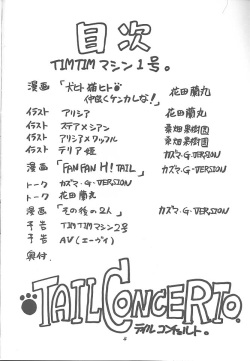 目次
TIMTIMマシン1号。
漫画「犬ヒト猫ヒト 仲良くケンカしな!」 花田蘭丸
イラスト アリシア 花田蘭丸
イラスト ステア×シアン 桑畑果樹園
イラスト アリシア×ワッフル 桑畑果樹園
イラスト テリア姫 カズマ・G-VERSION
漫画「FAN FAN H! TAIL」 カズマ・G-VERSION
トーク カズマ・G-VERSION
トーク 花田蘭丸
漫画「その後の2人」 カズマ・G-VERSION
予告 TIMTIMマシン2号
予告 AV(エーヴイ)
奥付.
TAIL CONCERTO.
テイルコンチェルト。